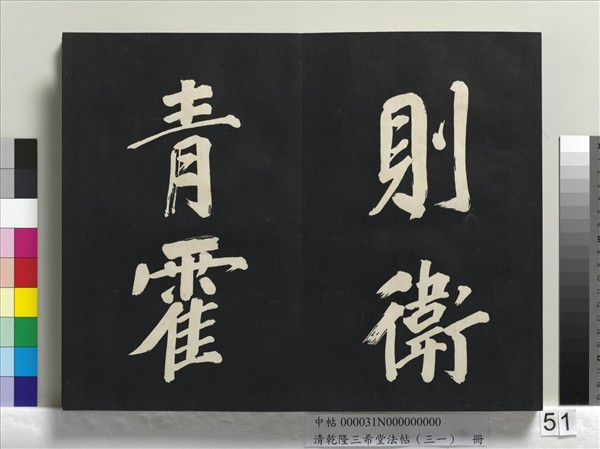 則衛
青霍
中帖 000031N000000000
清乾隆三希堂法帖（三一） 冊
51